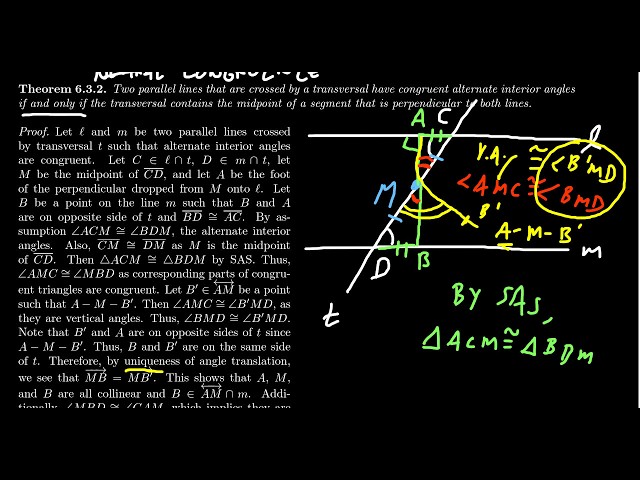 NEUTRAL CONGRUENCE
Theorem 6.3.2. Two parallel lines that are crossed by a transversal have congruent alternate interior angles
if and only if the transversal contains the midpoint of a segment that is perpendicular to both lines.
Proof. Let ℓ and m be two parallel lines crossed
by transversal t such that alternate interior angles
are congruent. Let C ∈ ℓ ∩ t, D ∈ m ∩ t, let
M be the midpoint of C̅D̅, and let A be the foot
of the perpendicular dropped from M onto ℓ. Let
B be a point on the line m such that B and A
are on opposite side of t and B̅D̅ ≅ A̅C̅. By as-
sumption ∠ACM ≅ ∠BDM, the alternate interior
angles. Also, C̅M̅ ≅ D̅M̅ as M is the midpoint
of C̅D̅. Then △ACM ≅ △BDM by SAS. Thus,
∠AMC ≅ ∠MBD as corresponding parts of congru-
ent triangles are congruent. Let B′ ∈ ⟷AM be a point
such that A − M − B′. Then ∠AMC ≅ ∠B′MD, as
they are vertical angles. Thus, ∠BMD ≅ ∠B′MD.
Note that B′ and A are on opposite sides of t since
A − M − B′. Thus, B and B′ are on the same side
of t. Therefore, by uniqueness of angle translation,
we see that →MB = →MB′. This shows that A, M,
and B are all collinear and B ∈ ⟷AM ∩ m. Addi-
tionally, ∠MBD ≅ ∠CAM, which implies they are
A
C
ℓ
V.A.
≅ ∠B'MD
∠AMC ≅ ∠BMD
M
B'
A-M-B'
m
D
B
t
BY SAS,
△ACM ≅ △BDM